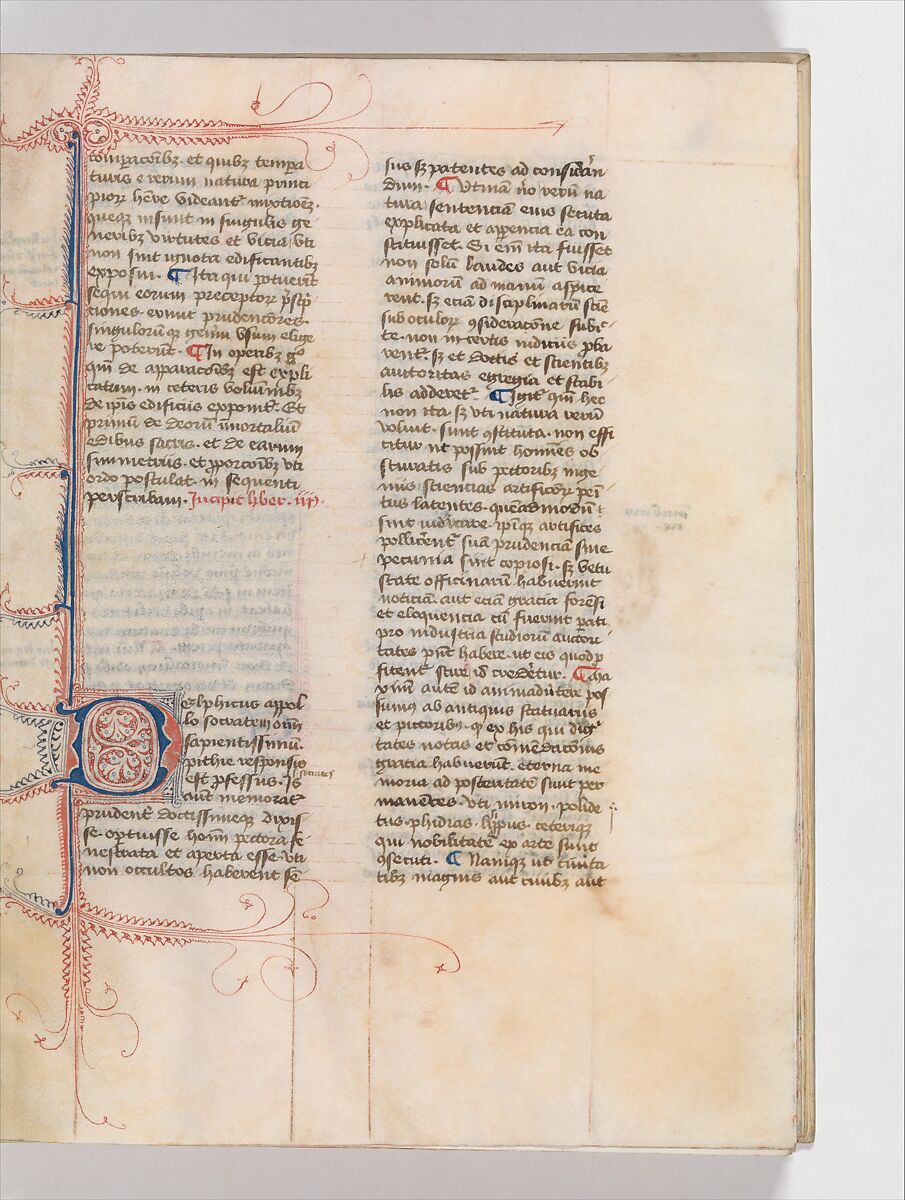 comparacoıbꝫ. et quibꝫ tempera
turis e rerum natura princi
pior hēre videant mixtioēꝫ.
queqꝫ insunt in singulis ge
neribꝫ virtutes et vicia vti
non sint ignota edificantibꝫ
exposui. ¶ Ita qui potuerīt
sequi eorum preceptoꝝ pscrip
ciones erunt prudenciores.
singulorūqꝫ genum vsum elige
re poterunt. ¶ In operibꝫ gͦ
qm̄ de apparacoībꝫ est expli
catum. in ceteris voluminībꝫ
de ipīs edificiis exponit̄. Et
primū de deorū īmortaliū
edibus sacris. et de earum
simmetriis. et proporcoībꝫ vti
ordo postulat. in sequenti
perscribam. Incipit liber. iij
Delphicus appol
lo socratem om̄
sapientissimū.
pithie responsis
est ꝓfessus. Is socrates
aut memorat̄
prudent̄ doctissimeqꝫ dixis
se. oportuisse homī pectora fe
nestrata et aperta esse. vti
non occultos haberent sē
sus sꝫ patentes ad considerān
dum. ¶ Vtinā v̄o rerū na
tura sentenciā eius secuta
explicata et aparencia ea con
stituisset. Si em̄ ita fuisset
non solū laudes aut vicia
animorū ad manū aspice
rent. sꝫ etiā disciplinarū scīe
sub oculoꝝ ꝯsideracōne subic
te. non incertis iudiciis proba
rent̄. sꝫ et doctis et scientibꝫ
auctoritas egregia et stabi
lis addere t̄. ¶ Igit̄ qm̄ hec
non ita. sꝫ vti natura rerū
voluit. sunt ꝯstituta. non effi
citur ut possint homīes ob
scuratis sub pectoribꝫ inge
niis sciencias artificioꝝ peni
tus latentes. queadmodū
sint iudicare. ipīqꝫ artifices
pollicent̄ suā prudenciā sine
pecunia sint copiosi. sꝫ vetu
state officinarū habuerint
noticiā. aut etiā gracia forēsi
et eloquencia cū fuerint parati
pro industria studiorū auctori
tates pn̄t habere. ut eis quod ꝓ
fitent̄ scire id crederetur. ¶ Maxa
xime autē id animadūtere pos
sumꝰ ab antiquis statuariis
et pictoribꝫ. ꝙ ex his qui digͥ
tates notas et comēdacōnis
gracia habuerūt. eterna me
moria ad posteritatē sunt per
manētes. vti miron. polide
tus. phidias. lysippus. ceteriqꝫ
qui nobilitatē ex arte sunt
ꝯsecuti. ¶ Namqꝫ ut ciuita
tibꝫ magnis aut ciuibꝫ aut